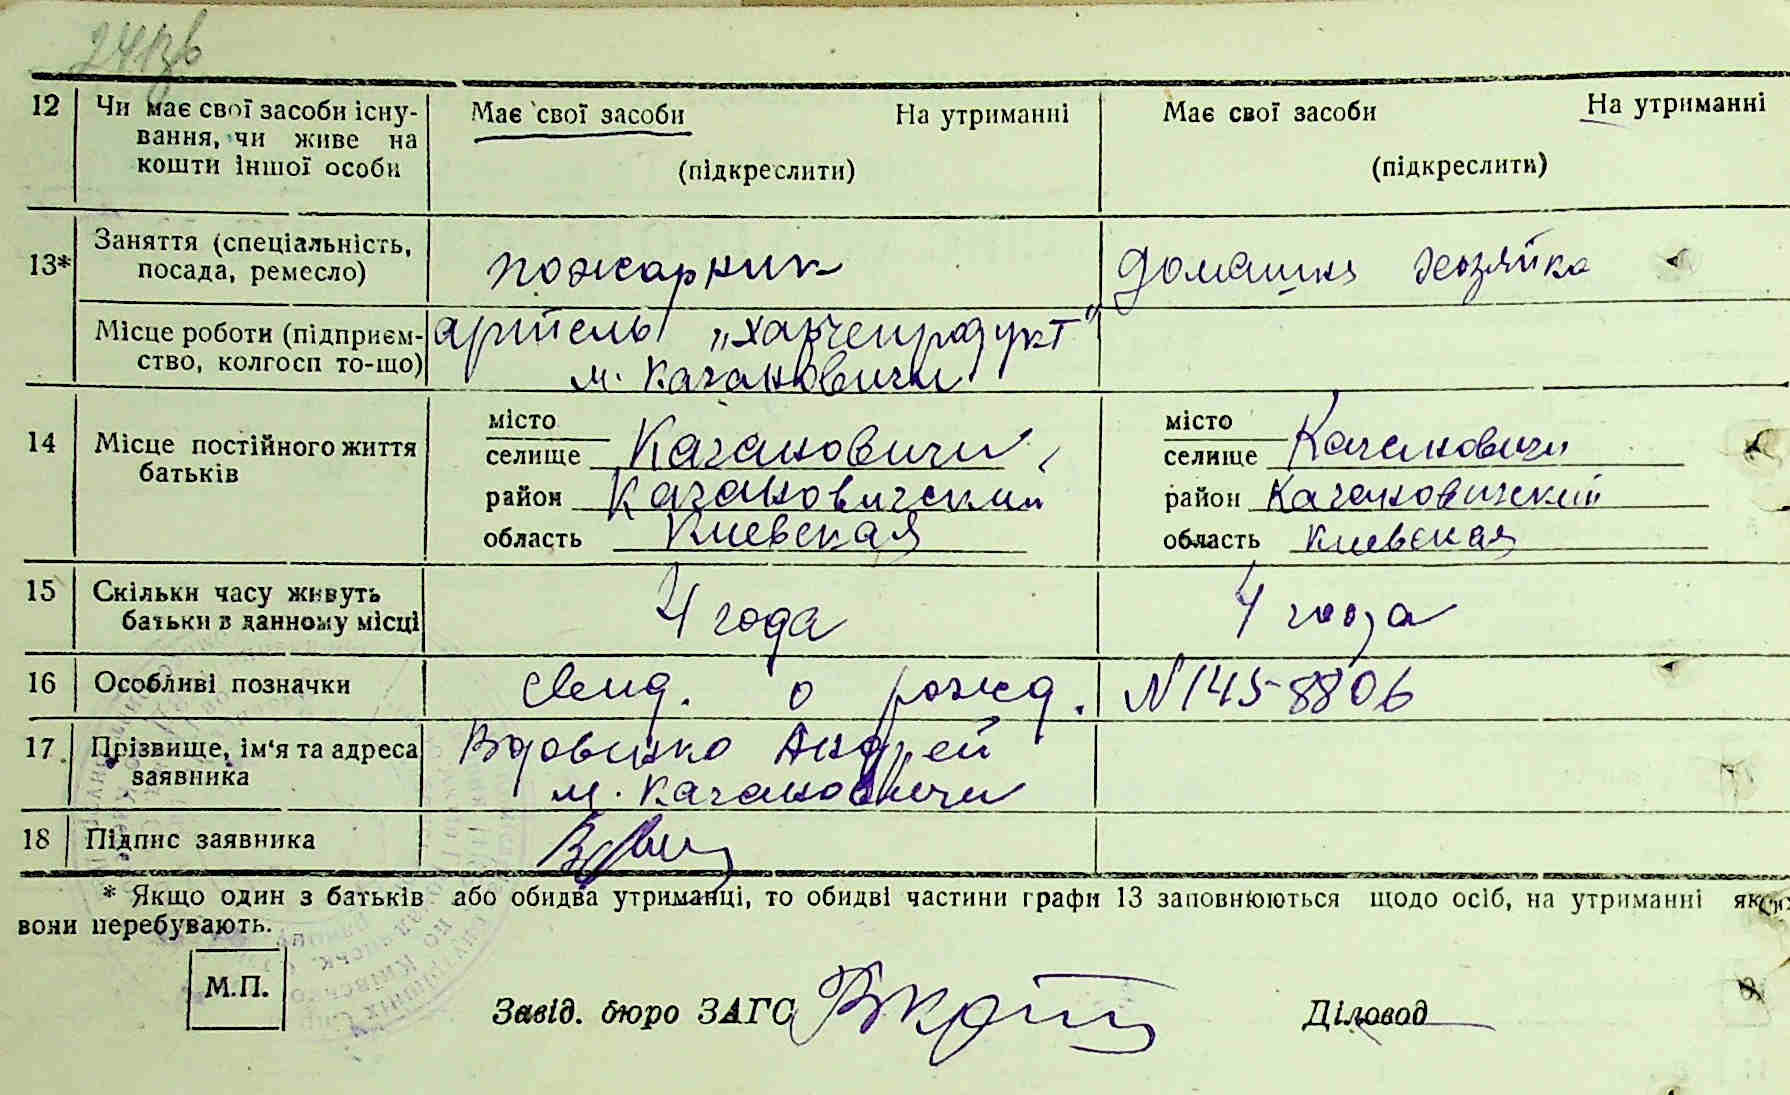 12 Чи має свої засоби існу- Має свої засоби На утриманні Має свої засоби На утриманні
вання, чи живе на
кошти іншої особи (підкреслити) (підкреслити)
13* Заняття (спеціальність, пожарник домашня хозяйка
посада, ремесло)
Місце роботи (підприєм- артель „харчепродукт"
ство, колгосп то-що) м. Кагановичи
14 Місце постійного життя місто місто
батьків селище Кагановичи, селище Кагановичи
район Кагановичский район Кагановичский
область Киевская область Киевская
15 Скільки часу живуть 4 года 4 года
батьки в данному місці
16 Особливі позначки свид. о рожд. N 145-8806
17 Прізвище, ім'я та адреса Вдовенко Андрей
заявника м. Кагановичи
18 Підпис заявника
* Якщо один з батьків або обидва утриманці, то обидві частини графи 13 заповнюються щодо осіб, на утриманні яких
вони перебувають.
М.П.
Завід. бюро ЗАГС Діловод